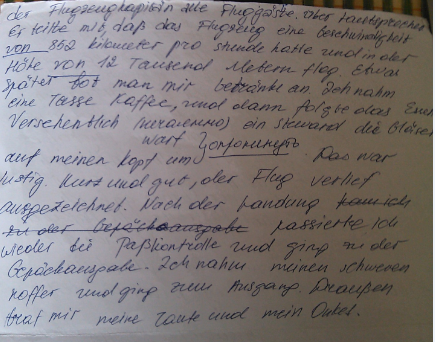 der Flugzeugkapitän alle Fluggäste über Lautsprecher
Er teilte mit, daß das Flugzeug eine Geschwindigkeit
von 862 kilometer pro stunde hatte und in der
Höhe von 12 Tausend Metern flog. Etwas
später bot man mir betränke an. Ich nahm
eine Tasse Kaffee, und dann folgte das
Versehentlich (нечаянно) ein steward die Gläser
warf опрокинуть
auf meinen Kopf um. Das war
lustig. Kurz und gut, der Flug verlief
ausgezeichnet. Nach der Landung kam ich
zu der Gepäckausgabe passierte ich
wieder die Paßkontrolle und ging zu der
Gepäckausgabe. Ich nahm meinen schweren
koffer und ging zum Ausgang Draußen
traf mir meine Tante und mein Onkel.